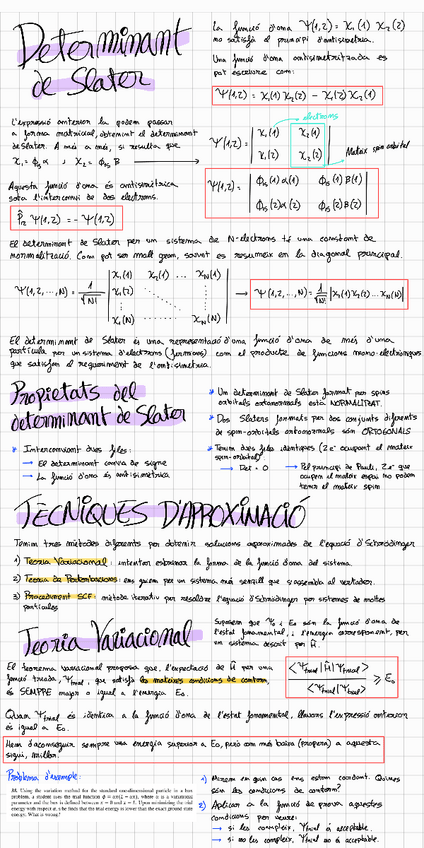 Determinant
de Slater
La funció d'ona Ψ(1,2) = χ₁(1) χ₂(2)
no satisfà el principi d'antisimetria.
Una funció d'ona antisimetritzada es
pot escriure com:
Ψ(1,2) = χ₁(1)χ₂(2) − χ₁(2)χ₂(1)
L'expressió anterior la podem passar
a forma matricial, obtenint el determinant
de Slater. A més a més, si resulta que
χ₁ = ϕ₁ₛ α ; χ₂ = ϕ₁ₛ β
electrons
Ψ(1,2) = | χ₁(1) χ₂(1) |
| χ₁(2) χ₂(2) |
Mateix spin orbital
Aquesta funció d'ona és antisimètrica
sota l'intercanvi de dos electrons.
P̂₁₂ Ψ(1,2) = − Ψ(1,2)
Ψ(1,2) = | ϕ₁ₛ(1)α(1) ϕ₁ₛ(1)β(1) |
| ϕ₁ₛ(2)α(2) ϕ₁ₛ(2)β(2) |
El determinant de Slater per un sistema de N-electrons té una constant de
normalització. Com pot ser molt gran, sovint es resumeix en la diagonal principal.
Ψ(1,2,...,N) = 1/√N! | χ₁(1) χ₂(1) ... χN(1) |
| χ₁(2) |
| χ₁(N) χN(N) |
→ Ψ(1,2,...,N) = 1/√N! |χ₁(1)χ₂(2)...χN(N)|
El determinant de Slater és una representació d'una funció d'ona de més d'una
partícula per un sistema d'electrons (fermions) com el producte de funcions mono-electròniques
que satisfan el requeriment de l'antisimetria.
Propietats del
determinant de Slater
* Intercanviant dues files:
→ El determinant canvia de signe
→ La funció d'ona és antisimètrica
* Un determinant de Slater format per spins
orbitals ortonormals està NORMALITZAT.
* Dos Slaters formats per dos conjunts diferents
de spin-orbitals ortonormals són ORTOGONALS
* Tenim dues files idèntiques (2 e⁻ ocupant el mateix
spin-orbital)
→ Det = 0
→ Pel principi de Pauli, 2 e⁻ que
ocupen el mateix espai no poden
tenir el mateix spin
TÈCNIQUES D'APROXIMACIÓ
Tenim tres mètodes diferents per obtenir solucions aproximades de l'equació d'Schrödinger
1) Teoria Variacional: intentar esbrinar la forma de la funció d'ona del sistema.
2) Teoria de Pertorbacions: ens guiem per un sistema més senzill que s'assembla al vertader.
3) Procediment SCF: mètode iteratiu per resoldre l'equació d'Schrödinger per sistemes de moltes
partícules
Teoria Variacional
Suposem que Ψ₀ i E₀ són la funció d'ona de
l'estat fonamental, i l'energia corresponent, per
un sistema descrit per Ĥ.
El teorema variacional proposa que, l'expectació de Ĥ per una
funció triada, Ψtrial, que satisfà les mateixes condicions de contorn,
és SEMPRE major o igual a l'energia E₀.
⟨Ψtrial|Ĥ|Ψtrial⟩ / ⟨Ψtrial|Ψtrial⟩ ≥ E₀
Quan Ψtrial és idèntica a la funció d'ona de l'estat fonamental, llavors l'expressió anterior
és igual a E₀.
Hem d'aconseguir sempre una energia superior a E₀, però com més baixa (propera) a aquesta
sigui, millor.
Problema d'exemple:
Using the variation method for the standard unidimensional particle in a box
problem, a student uses the trial function
parameter and the box is defined between x = 0 and x = l. Upon minimizing the trial
energy with respect to
energy. What is wrong?
1) Mirem en quin cas ens estem condant. Quines
són les condicions de contorn?
2) Apliquem a la funció de prova aquestes
condicions per veure:
→ si les compleix, Ψtrial és acceptable.
→ si no les compleix, Ψtrial no és acceptable.